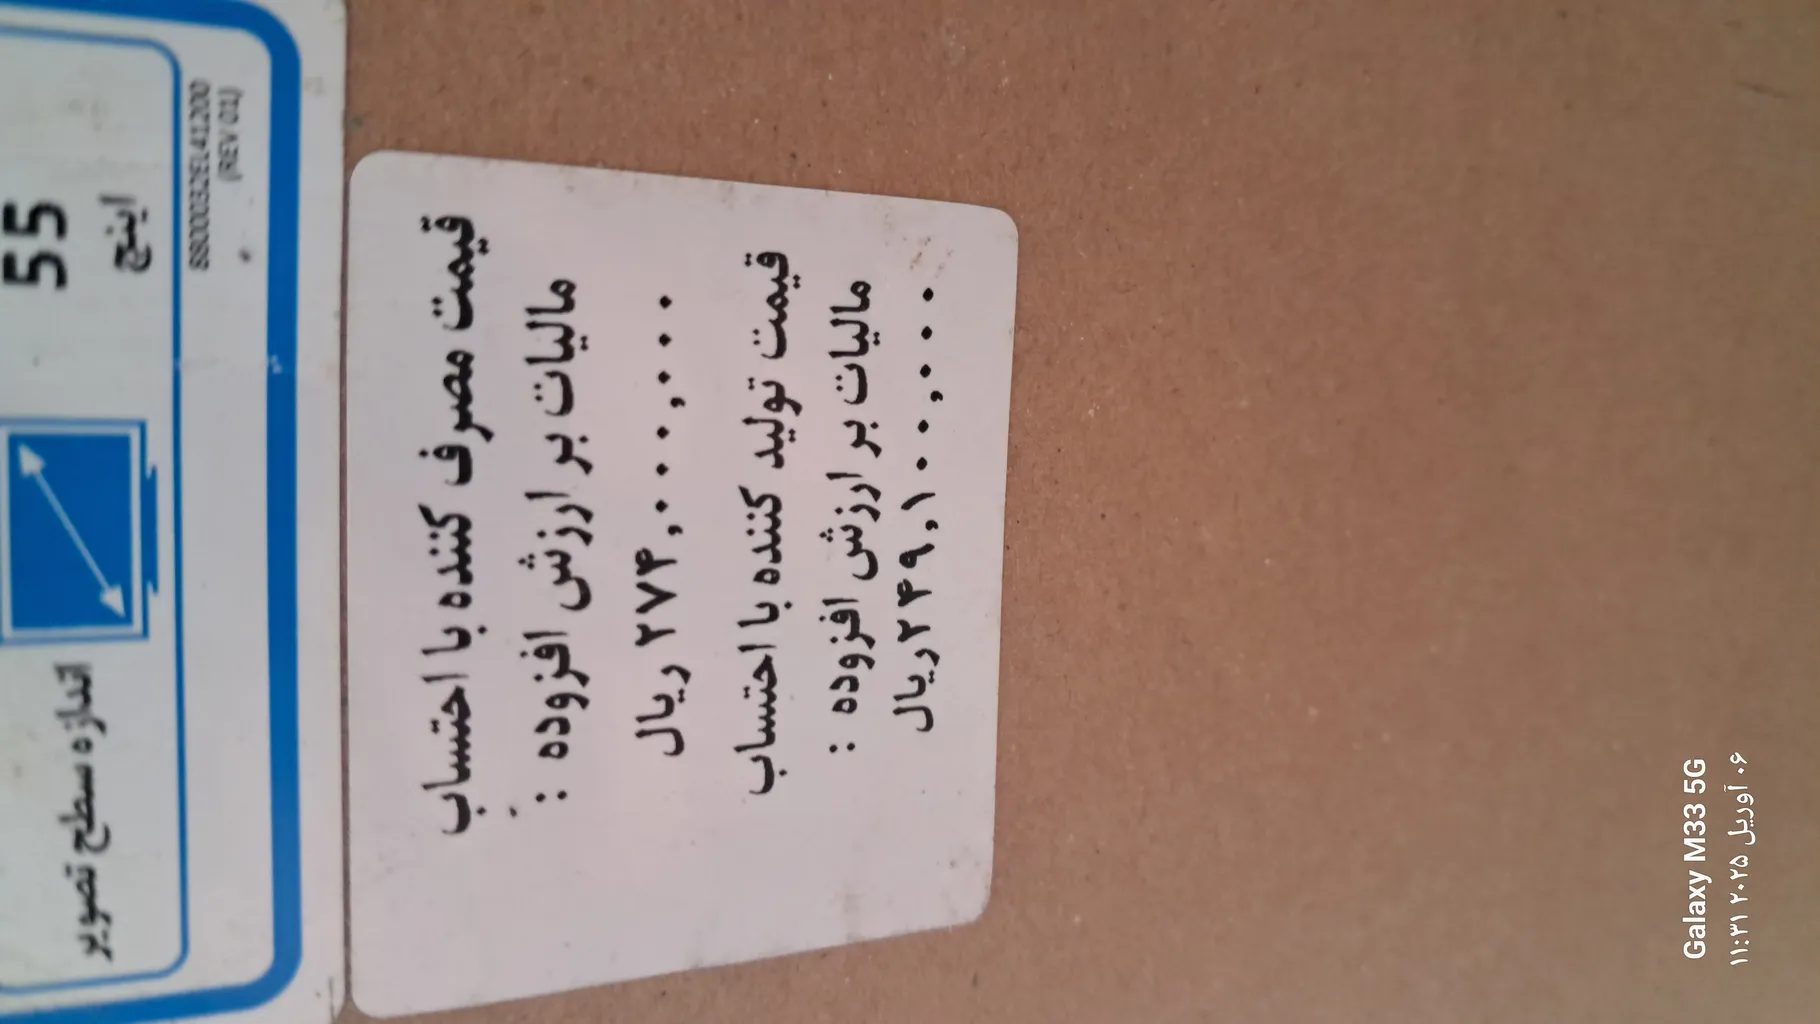 55
اینچ
اندازه سطح تصویر
88000032EL41200
(REV 01)
قیمت مصرف کننده با احتساب
مالیات بر ارزش افزوده :
۲۷۴,۰۰۰,۰۰۰ ریال
قیمت تولید کننده با احتساب
مالیات بر ارزش افزوده :
۲۴۹,۱۰۰,۰۰۰ریال
Galaxy M33 5G
۰۶ آوریل ۲۰۲۵ ۱۱:۳۱